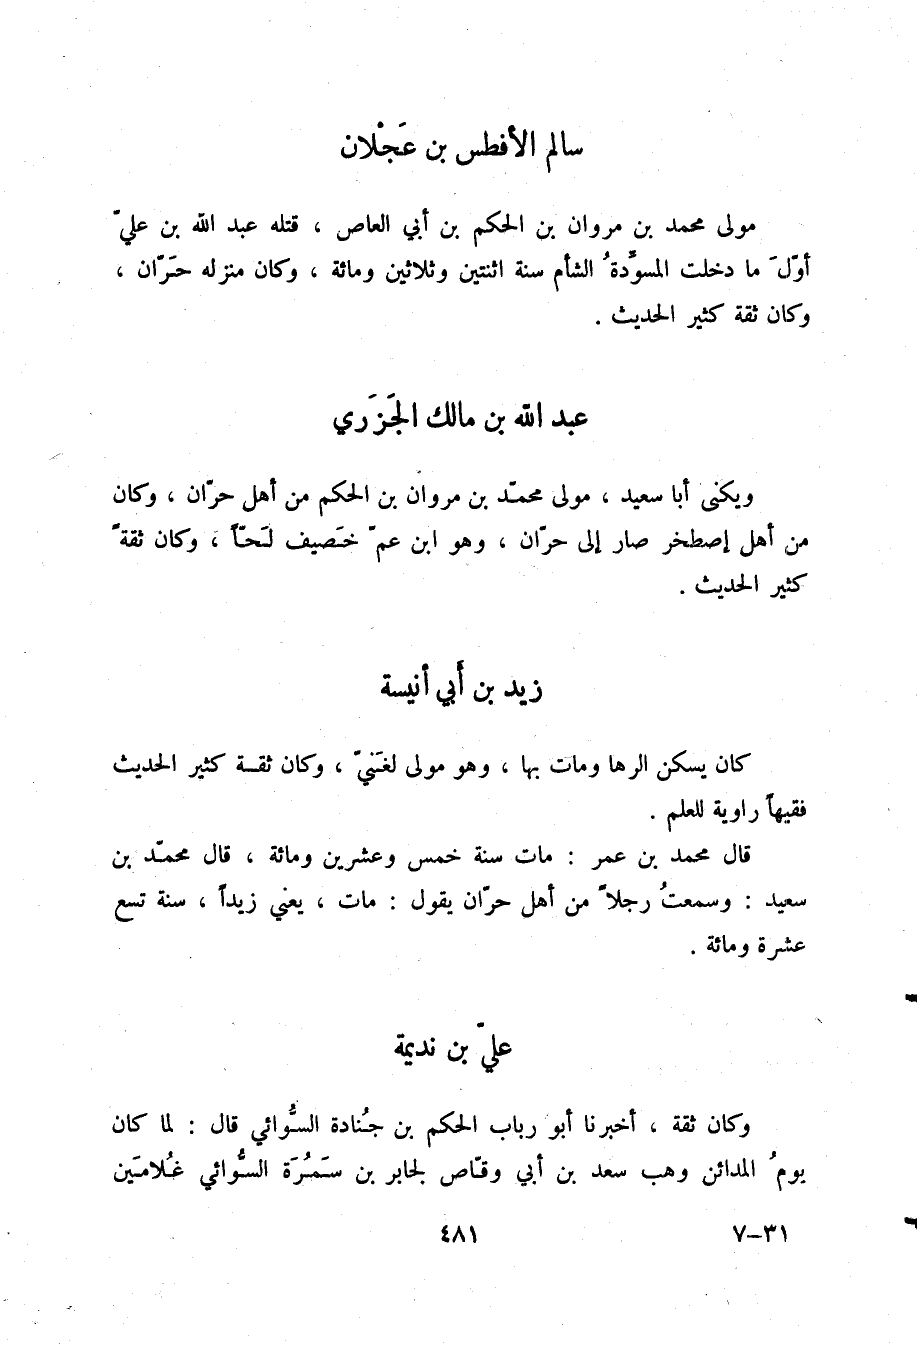 سالم الأفطس بن عَجْلان
مولى محمد بن مروان بن الحكم بن أبي العاص ، قتله عبد الله بن عليّ
أوّلَ ما دخلت المسوِّدةُ الشأم سنة اثنتين وثلاثين ومائة ، وكان منزله حَرّان ،
وكان ثقة كثير الحديث .
عبد الله بن مالك الجَزَري
ويكنى أبا سعيد ، مولى محمّد بن مروان بن الحكم من أهل حرّان ، وكان
من أهل إصطخر صار إلى حرّان ، وهو ابن عمّ خَصيف لَحّاً ، وكان ثقةً
كثير الحديث .
زيد بن أَبي أنيسة
كان يسكن الرها ومات بها ، وهو مولى لغَنيّ ، وكان ثقـة كثير الحديث
فقيهاً راوية للعلم .
قال محمد بن عمر : مات سنة خمس وعشرين ومائة ، قال محمّد بن
سعيد : وسمعتُ رجلاً من أهل حرّان يقول : مات ، يعني زيداً ، سنة تسع
عشرة ومائة .
عليّ بن نديمة
وكان ثقة ، أخبرنا أبو رباب الحكم بن جُنادة السُّوائي قال : لما كان
يومُ المدائن وهب سعد بن أبي وقّاص لجابر بن سَمُرَة السُّوائي غُلامَين
٣١–٧
٤٨١